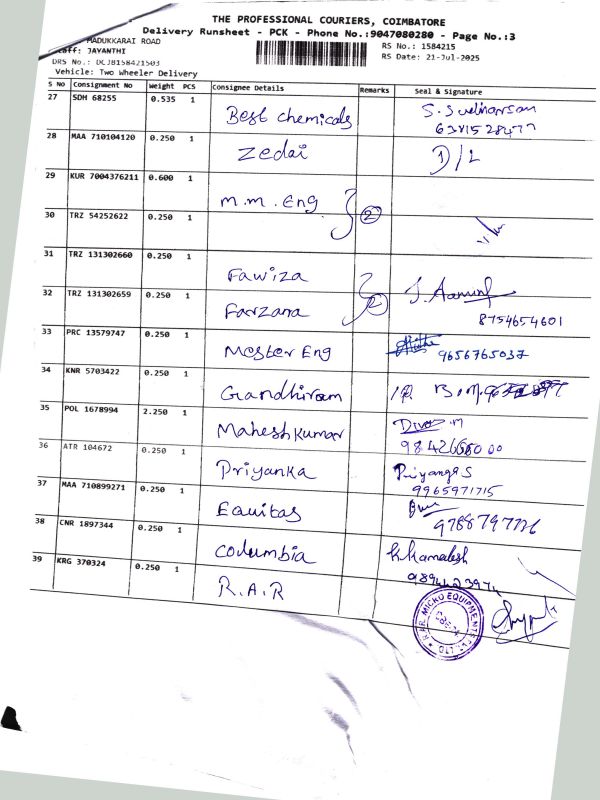 THE PROFESSIONAL COURIERS, COIMBATORE
Delivery Runsheet - PCK - Phone No.:9047080280 - Page No.:3
MADUKKARAI ROAD
Staff: JAYANTHI
RS No.: 1584215
DRS No.: DCJB158421503
RS Date: 21-Jul-2025
Vehicle: Two Wheeler Delivery
S No Consignment No Weight PCS Consignee Details Remarks Seal & Signature
27 SDH 68255 0.535 1 Best Chemicals S.Sudharsan
6381528477
28 MAA 710104120 0.250 1 Zedai D/L
29 KUR 7004376211 0.600 1 M.M. Eng 2
30 TRZ 54252622 0.250 1
31 TRZ 131302660 0.250 1 Fawiza 2
32 TRZ 131302659 0.250 1 Farzana 8754654601
33 PRC 13579747 0.250 1 Mester Eng 9656765037
34 KNR 5703422 0.250 1 Gandhiram
35 POL 1678994 2.250 1 Mahesh Kumar
36 ATR 104672 0.250 1 Priyanka Priyanga S
9965971715
37 MAA 710899271 0.250 1 Equitas 9788797726
38 CNR 1897344 0.250 1 Columbia K.Kamalesh
39 KRG 370324 0.250 1 R.A.R
R.A.R. MICRO EQUIPMENTS PVT. LTD.